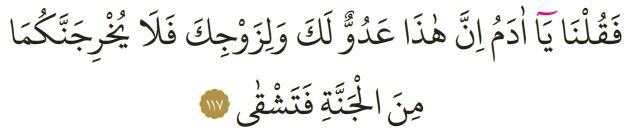 فَقُلْنَا يَٓا اٰدَمُ اِنَّ هٰذَا عَدُوٌّ لَكَ وَلِزَوْجِكَ فَلَا يُخْرِجَنَّكُمَا
مِنَ الْجَنَّةِ فَتَشْقٰى ١١٧